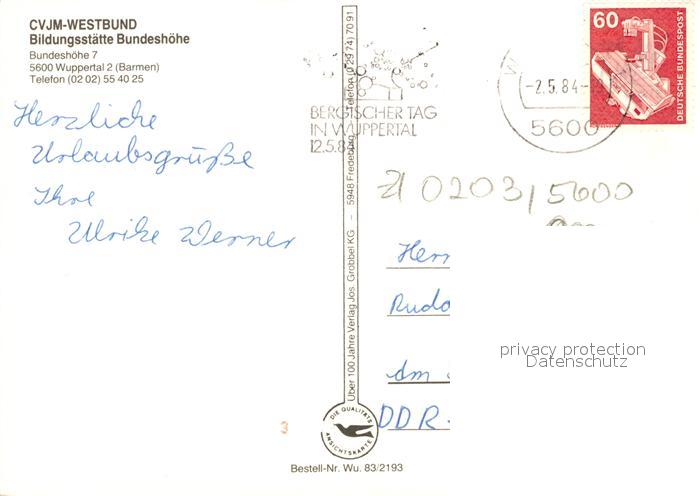 CVJM-WESTBUND
Bildungsstätte Bundeshöhe
Bundeshöhe 7
5600 Wuppertal 2 (Barmen)
Telefon (02 02) 55 40 25
Herzliche
Urlaubsgrüße
Ihre
Ulrike Werner
Über 100 Jahre Verlag Jos. Grobbel KG – 5948 Fredeburg Telefon (0 29 74) 70 91
BERGISCHER TAG
IN WUPPERTAL
12.5.84
-2.5.84-
5600
60
DEUTSCHE BUNDESPOST
0203/5600
Herr
Rudo
Am
DDR-
privacy protection
Datenschutz
DIE QUALITÄTS
ANSICHTSKARTE
3
Bestell-Nr. Wu. 83/2193